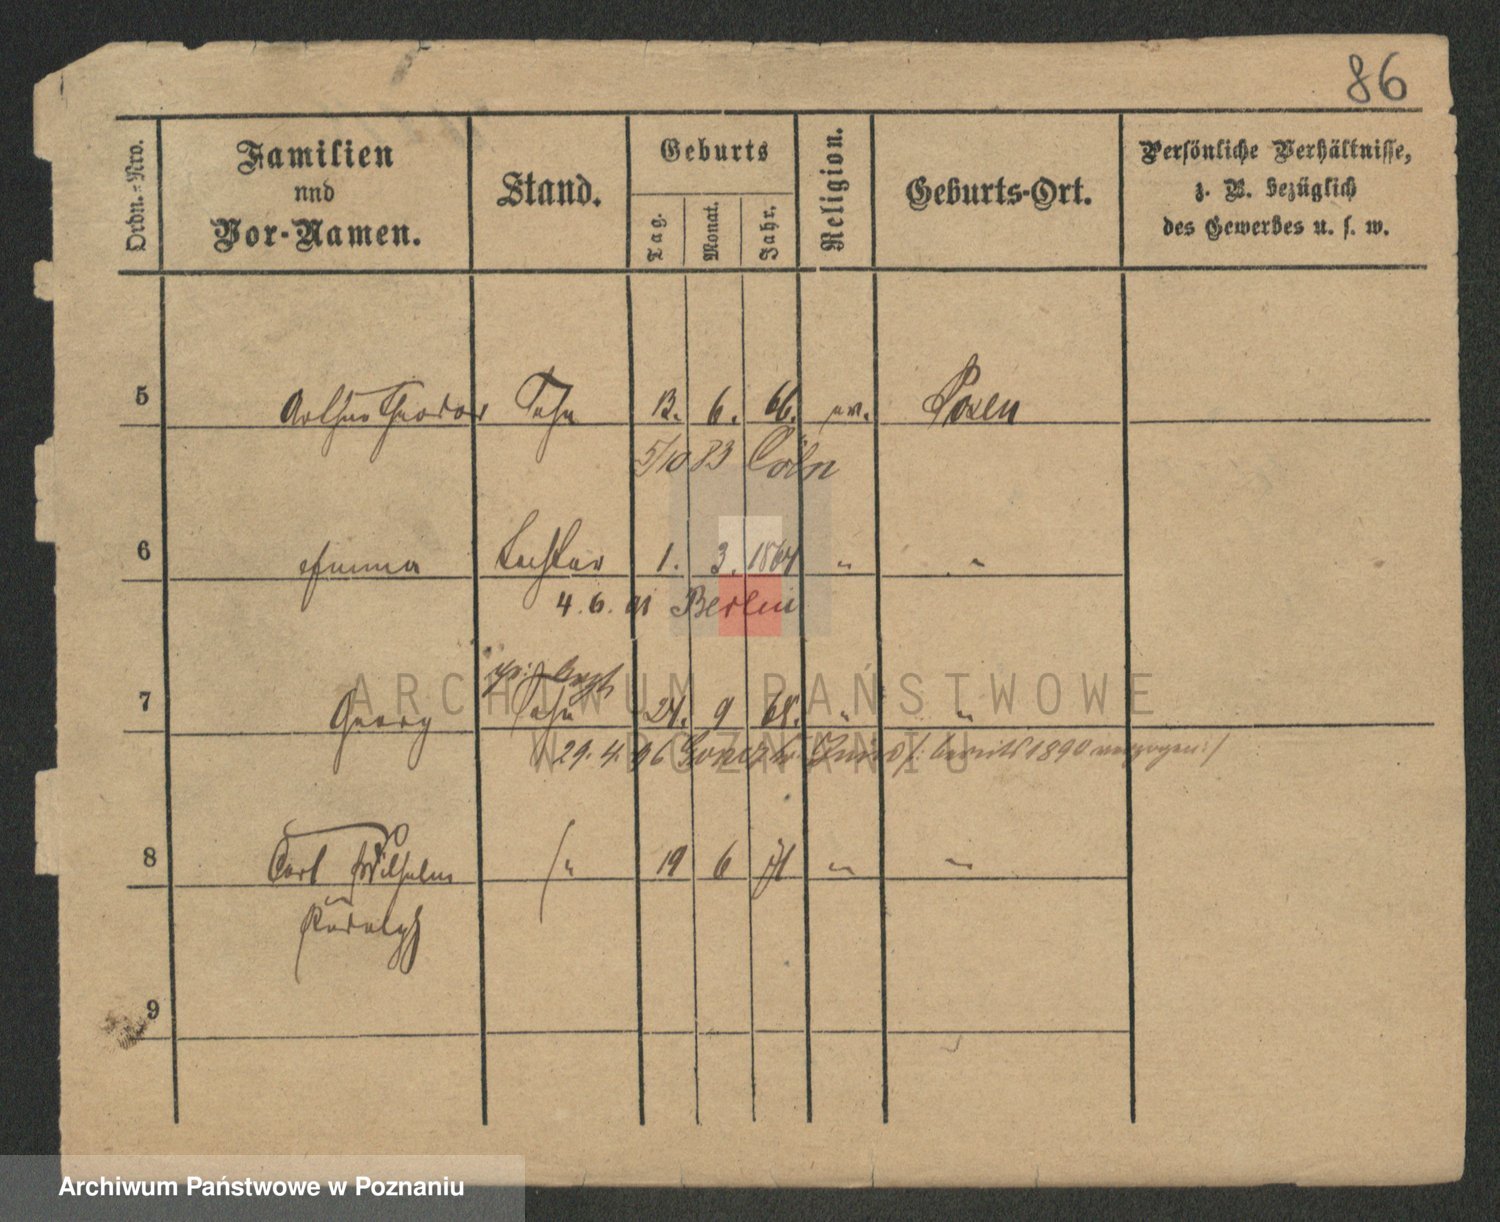 86
Ordn.-Nro.
Familien
und
Vor-Namen.
Stand.
Geburts
Tag.
Monat.
Jahr.
Religion.
Geburts-Ort.
Persönliche Verhältnisse,
z. B. bezüglich
des Gewerbes u. s. w.
5 Arthur Theodor Sohn 13. 6. 66. ev. Posen
5/10 83 Cöln
6 Emma Tochter 1. 3. 1864 " "
4. 6. 91 Berlin
7 Georg Sohn 24. 9 68. " "
29. 4. 96 bereits 1890
8 Carl Wilhelm " 19 6 71 " "
Rudolph
9
ARCHIWUM PAŃSTWOWE
W POZNANIU
Archiwum Państwowe w Poznaniu